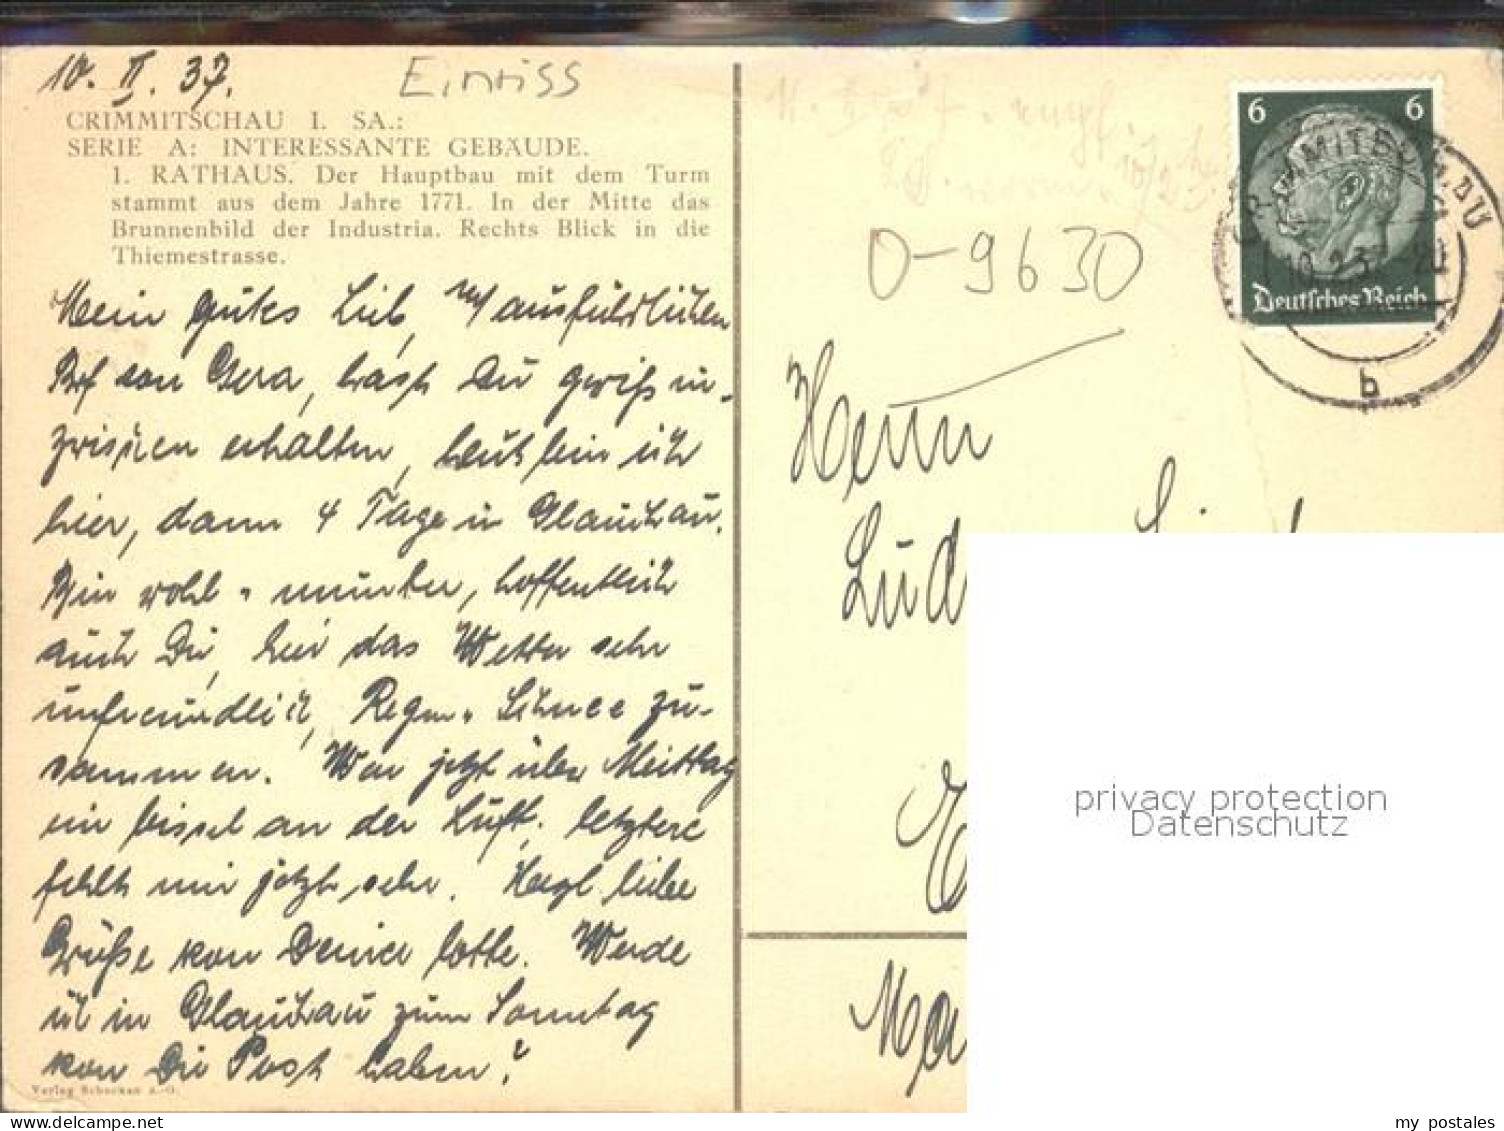 10. II. 37.
Einriss
CRIMMITSCHAU I. SA.:
SERIE A: INTERESSANTE GEBÄUDE.
1. RATHAUS. Der Hauptbau mit dem Turm
stammt aus dem Jahre 1771. In der Mitte das
Brunnenbild der Industria. Rechts Blick in die
Thiemestrasse.
Mein gutes Lieb, ausführlichen
Brf von Gera, hast Du gewiß in-
zwischen erhalten, heute bin ich
hier, dann 4 Tage in Glauchau.
Bin wohl u. munter, hoffentlich
auch Du, hier das Wetter sehr
unfreundlich, Regen u. Schnee zu-
sammen. War jetzt über Mittag
ein bissel an der Luft, letztere
fehlt mir jetzt sehr. Herzl liebe
Grüße von Deiner Lotte. Werde
ich in Glauchau zum Sonntag
von Dir Post haben?
Verlag Schockan A.-G.
6 6
Deutsches Reich
CRIMMITSCHAU
b
O-9630
Herrn
Lud
privacy protection
Datenschutz
my postales